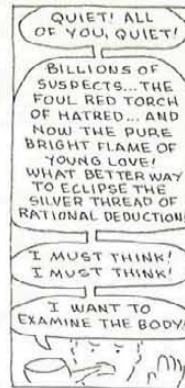 QUIET! ALL
OF YOU, QUIET!
BILLIONS OF
SUSPECTS...THE
FOUL RED TORCH
OF HATRED...AND
NOW THE PURE
BRIGHT FLAME OF
YOUNG LOVE!
WHAT BETTER WAY
TO ECLIPSE THE
SILVER THREAD OF
RATIONAL DEDUCTION!
I MUST THINK!
I MUST THINK!
I WANT TO
EXAMINE THE BODY!